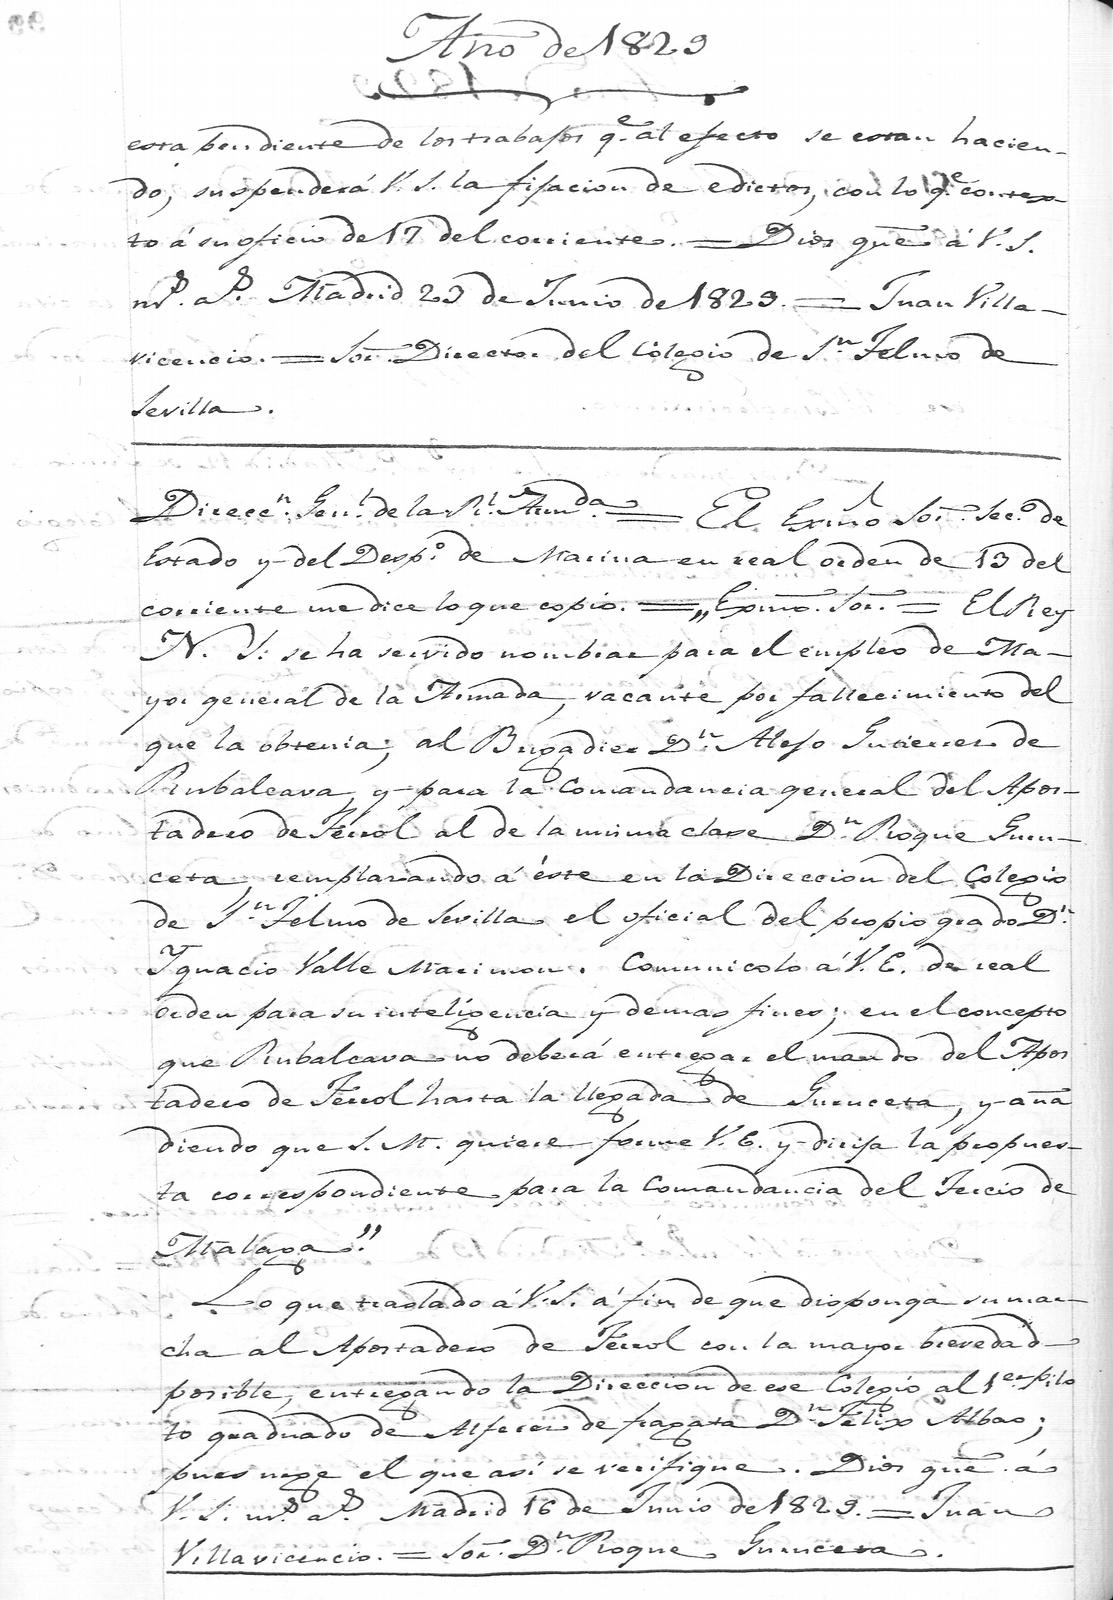 Año de 1829
esta pendiente de los trabajos q.e al efecto se estan hacien-
do, suspenderá V. S. la fijacion de edictos, con lo q.e contex-
to á su oficio de 17 del corriente. = Dios gue á V. S.
m.s a.s Madrid 23 de Junio de 1829. = Juan Villa-
vicencio. = Sor. Director del Colegio de S.n Telmo de
Sevilla.
Direcc.n Gen.l de la R.l Arm.da = El Exmo Sor. Sec.o de
Estado y del Desp.o de Marina en real orden de 13 del
corriente me dice lo que copio. = „Exmo. Sor. = El Rey
N. S. se ha servido nombrar para el empleo de Ma-
yor general de la Armada, vacante por fallecimiento del
que la obtenia, al Brigadier D.n Alejo Gutierrez de
Rubalcava, y para la Comandancia general del Apos-
tadero de Ferrol al de la misma clase D.n Roque Guru-
ceta, remplazando á éste en la Direccion del Colegio
de S.n Telmo de Sevilla el oficial del propio grado D.n
Ygnacio Valle Marimon. Comunicolo á V. E. de real
orden para su inteligencia y demas fines; en el concepto
que Rubalcava no deberá entregar el mando del Apos
tadero de Ferrol hasta la llegada de Guruceta, y aña
diendo que S. M. quiere forme V. E. y dirija la propues-
ta correspondiente para la Comandancia del Tercio de
Malaga."
Lo que traslado á V. S. á fin de que disponga su mar-
cha al Apostadero de Ferrol con la mayor brevedad
posible, entregando la Direccion de ese Colegio al 1.er pilo
to graduado de Alferez de fragata D.n Felix Albao;
pues urge el que así se verifique. Dios gue á
V. S. m.s a.s Madrid 16 de Junio de 1829. = Juan
Villavicencio. = Sor. D.n Roque Guruceta.